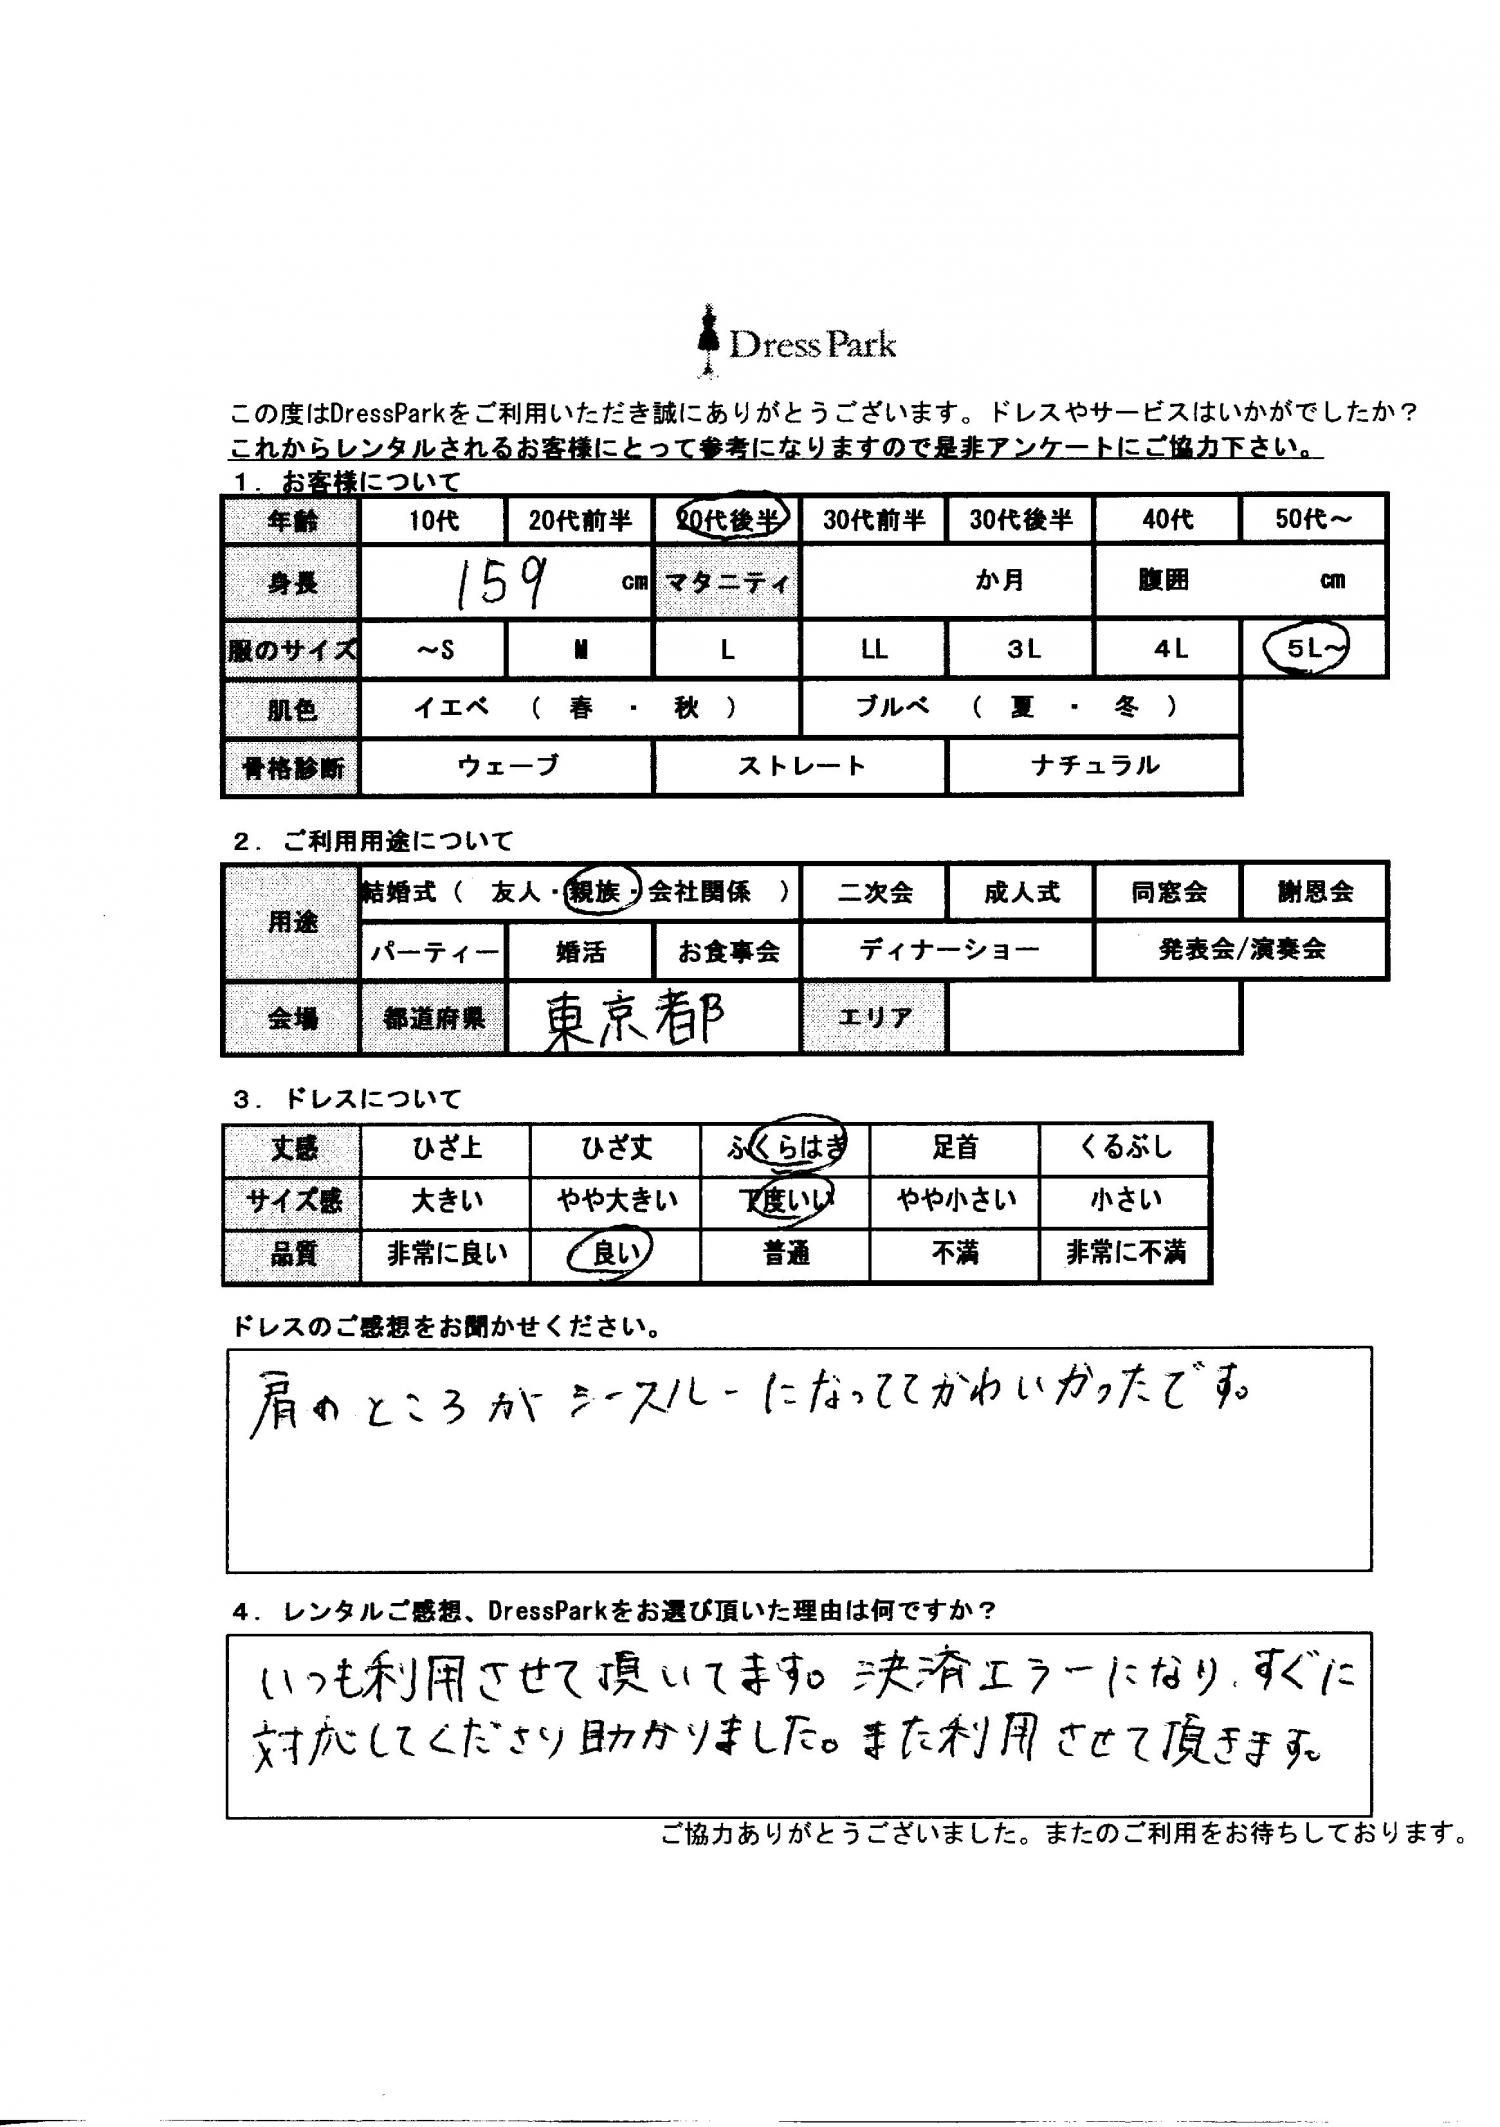 Dress Park
この度はDressParkをご利用いただき誠にありがとうございます。ドレスやサービスはいかがでしたか？
これからレンタルされるお客様にとって参考になりますので是非アンケートにご協力下さい。
1. お客様について
年齢 10代 20代前半 20代後半 30代前半 30代後半 40代 50代～
身長 159 cm マタニティ か月 腹囲 cm
服のサイズ ～S M L LL 3L 4L 5L～
肌色 イエベ （ 春 ・ 秋 ） ブルベ （ 夏 ・ 冬 ）
骨格診断 ウェーブ ストレート ナチュラル
2. ご利用用途について
用途 結婚式（ 友人・親族・会社関係 ） 二次会 成人式 同窓会 謝恩会
パーティー 婚活 お食事会 ディナーショー 発表会/演奏会
会場 都道府県 東京都 エリア
3. ドレスについて
丈感 ひざ上 ひざ丈 ふくらはぎ 足首 くるぶし
サイズ感 大きい やや大きい 丁度いい やや小さい 小さい
品質 非常に良い 良い 普通 不満 非常に不満
ドレスのご感想をお聞かせください。
肩のところがシースルーになっててかわいかったです。
4. レンタルご感想、DressParkをお選び頂いた理由は何ですか？
いつも利用させて頂いてます。決済エラーになり、すぐに
対応してくださり助かりました。また利用させて頂きます。
ご協力ありがとうございました。またのご利用をお待ちしております。